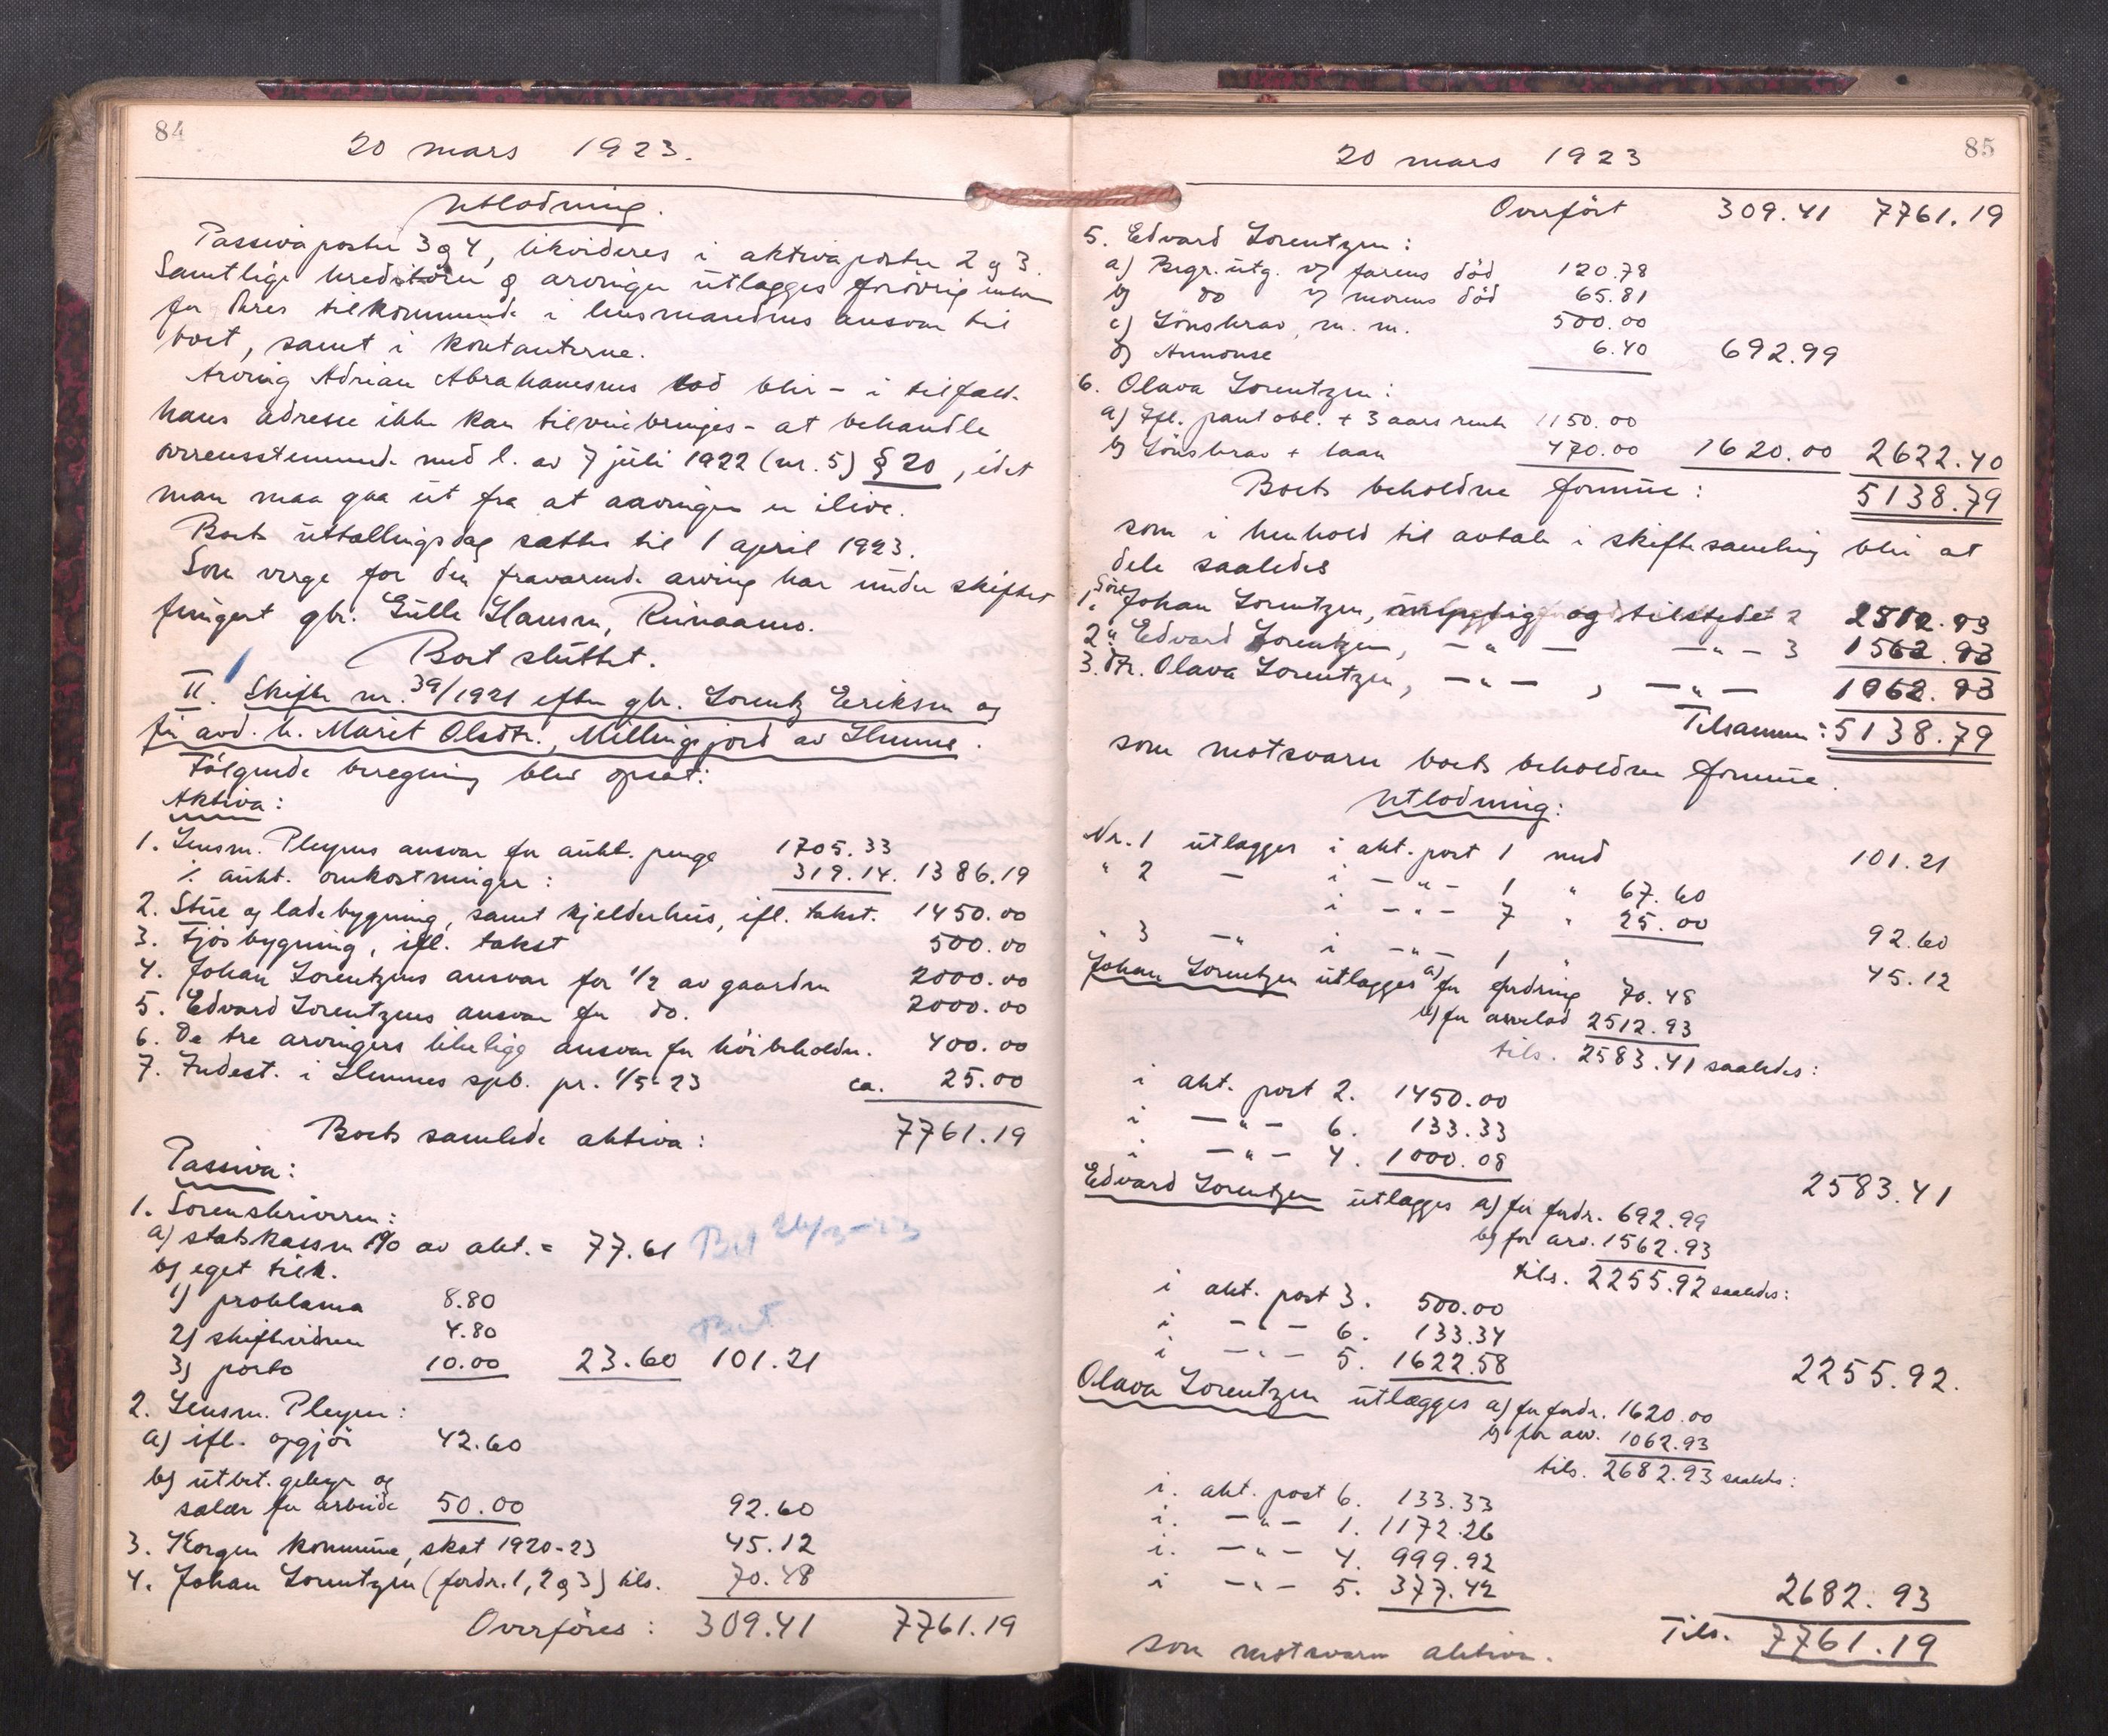 84
20 mars 1923.
Utlodning.
Passivaposter 3 og 4, likvideres i aktivaposter 2 og 3.
Samtlige kreditorer og arvinger utlægges forøvrig
for deres tilkommende i lensmandens ansvar til
boet, samt i kontanterne.
Arving Adrian Abrahamsens lod blir - i tilfælde
hans adresse ikke kan tilveiebringes - at behandle
overensstemmende med l. av 7 juli 1922 (nr. 5) § 20, idet
man maa gaa ut fra at arvingen er ilive.
Boets uttællingsdag sættes til 1 april 1923.
Som verge for den fraværende arving har under skiftet
fungert gbr. Hansen,
Boet sluttet.
II. Skifte nr. 39/1921 efter gbr. Lorentz Eriksen og
før avd. h. Marit Olsdtr., Millingsjord av Hemnes.
Følgende beregning blev opsat:
Aktiva:
1. Lensm. Pleyms ansvar for aukt. penge 1705.33
÷ aukt. omkostninger: 319.14. 1386.19
2. Stue og ladebygning, samt kjelderhus, ifl. takst. 1450.00
3. Fjøsbygning, ifl. takst 500.00
4. Johan Lorentzens ansvar for 1/2 av gaarden 2000.00
5. Edvard Lorentzens ansvar for do. 2000.00
6. De tre arvingers likelige ansvar for høibeholdn. 400.00
7. Indest. i Hemnes spb. pr. 1/5-23 ca. 25.00
Boets samlede aktiva: 7761.19
Passiva:
1. Sorenskriveren:
a) statskassen 1% av akt. = 77.61 Bet 26/3-23
b) eget tilk.
1) proklama 8.80
2) skifteutdrag 4.80 Bet
3) porto 10.00 23.60 101.21
2. Lensm. Pleym:
a) ifl. opgjør 42.60
b) utbet. gebyr og
salær for arbeide 50.00 92.60
3. Korgen kommune, skat 1920-23 45.12
4. Johan Lorentzen (fordr. 1, 2 og 3) tils. 70.48
Overføres: 309.41 7761.19
85
20 mars 1923
Overført 309.41 7761.19
5. Edvard Lorentzen:
a) Begr. utg. v/ farens død 120.78
b) do v/ morens død 65.81
c) Lønskrav, m. m. 500.00
d) Annonse 6.40 692.99
6. Olava Lorentzen:
a) Ifl. pantobl. + 3 aars rente 1150.00
b) Lønskrav + laan 470.00 1620.00 2622.40
Boets beholdne formue: 5138.79
som i henhold til avtale i skiftesamling blir at
dele saaledes
1. Søn Johan Lorentzen, myndig og tilstede 2512.93
2. " Edvard Lorentzen, — " — — " — 1562.93
3. Dtr. Olava Lorentzen, — " — , — " — 1062.93
Tilsammen: 5138.79
som motsvarer boets beholdne formue.
Utlodning:
Nr. 1 utlægges i akt. post 1 med 101.21
" 2 — i — " — 1 " 67.60
i — " — 7 " 25.00 92.60
" 3 — " i — " — 1 " 45.12
Johan Lorentzen utlægges a) for fordring 70.48
b) for arvelod 2512.93
tils. 2583.41 saaledes:
i akt. post 2. 1450.00
i — " — 6. 133.33
i — " — 4. 1000.08 2583.41
Edvard Lorentzen utlægges a) for fordr. 692.99
b) for arv. 1562.93
tils. 2255.92 saaledes:
i akt. post 3. 500.00
i — " — 6. 133.34
i — " — 5. 1622.58 2255.92.
Olava Lorentzen utlægges a) for fordr. 1620.00
b) for arv. 1062.93
tils. 2682.93 saaledes:
i. akt. post 6. 133.33
i. — " — 1. 1172.26
i. — " — 4. 999.92
i — " — 5. 377.42 2682.93
Tils. 7761.19
som motsvarer aktiva.